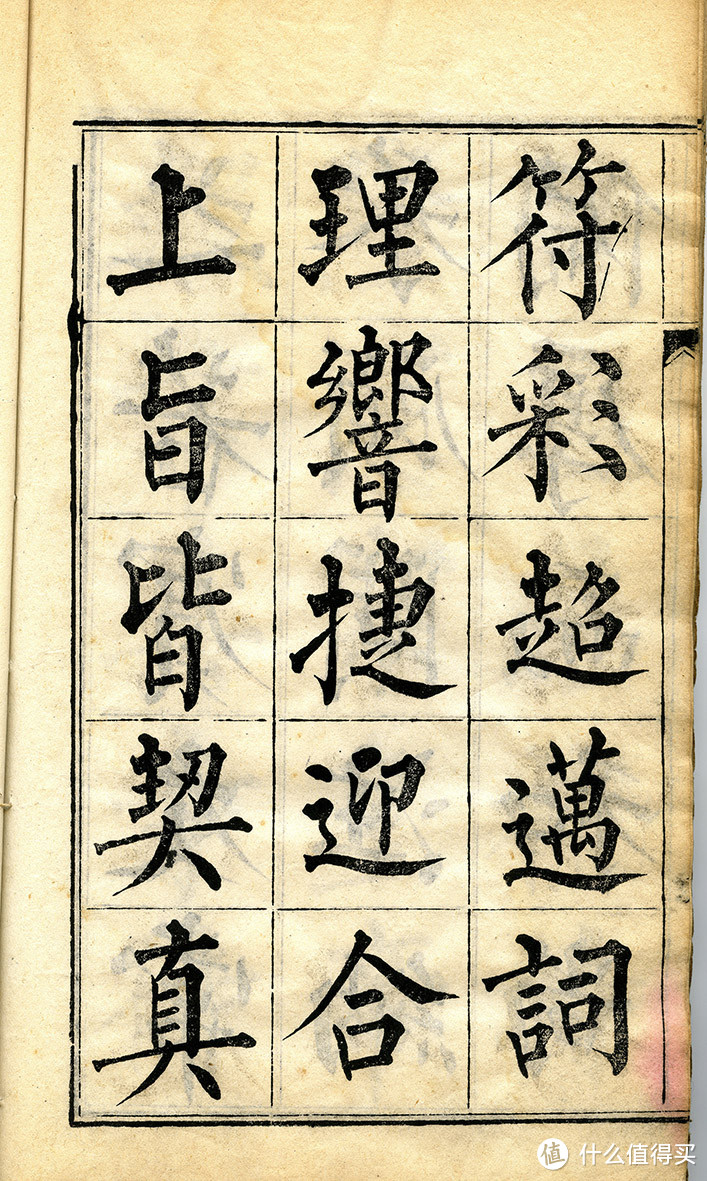 符彩超邁詞
理響捷迎合
上旨皆契真
值 什么值得买